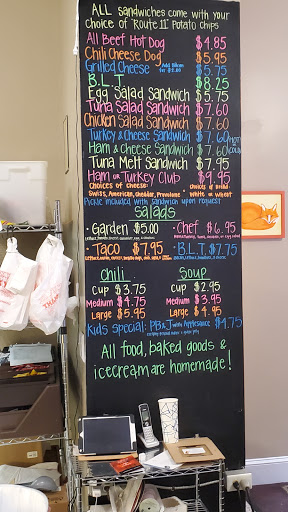 ALL sandwiches come with your
choice of Route 11 Potato chips
All Beef Hot Dog $4.85
Chili Cheese Dog $5.95
Grilled Cheese Add Bacon for $2.00 $5.75
B.L.T. $8.25
Egg Salad Sandwich $5.75
Tuna Salad Sandwich $7.60
Chicken Salad Sandwich $7.60
Turkey & Cheese Sandwich $7.60
Ham & cheese Sandwich $7.60
Tuna Melt Sandwich $7.95
Ham or Turkey Club $9.95
Choices of Cheese: Choices of Bread:
Swiss, American, Cheddar, Provolone White or Wheat
Pickle included with sandwich upon request
Salads
· Garden $5.00 · Chef $6.95
· Taco $7.95 · B.L.T. $7.75
Chili Soup
Cup $3.75 Cup $2.95
Medium $4.75 Medium $3.95
Large $5.95 Large $4.95
Kids Special: PB&J with Applesauce $4.75
All food, baked goods &
icecream are homemade!